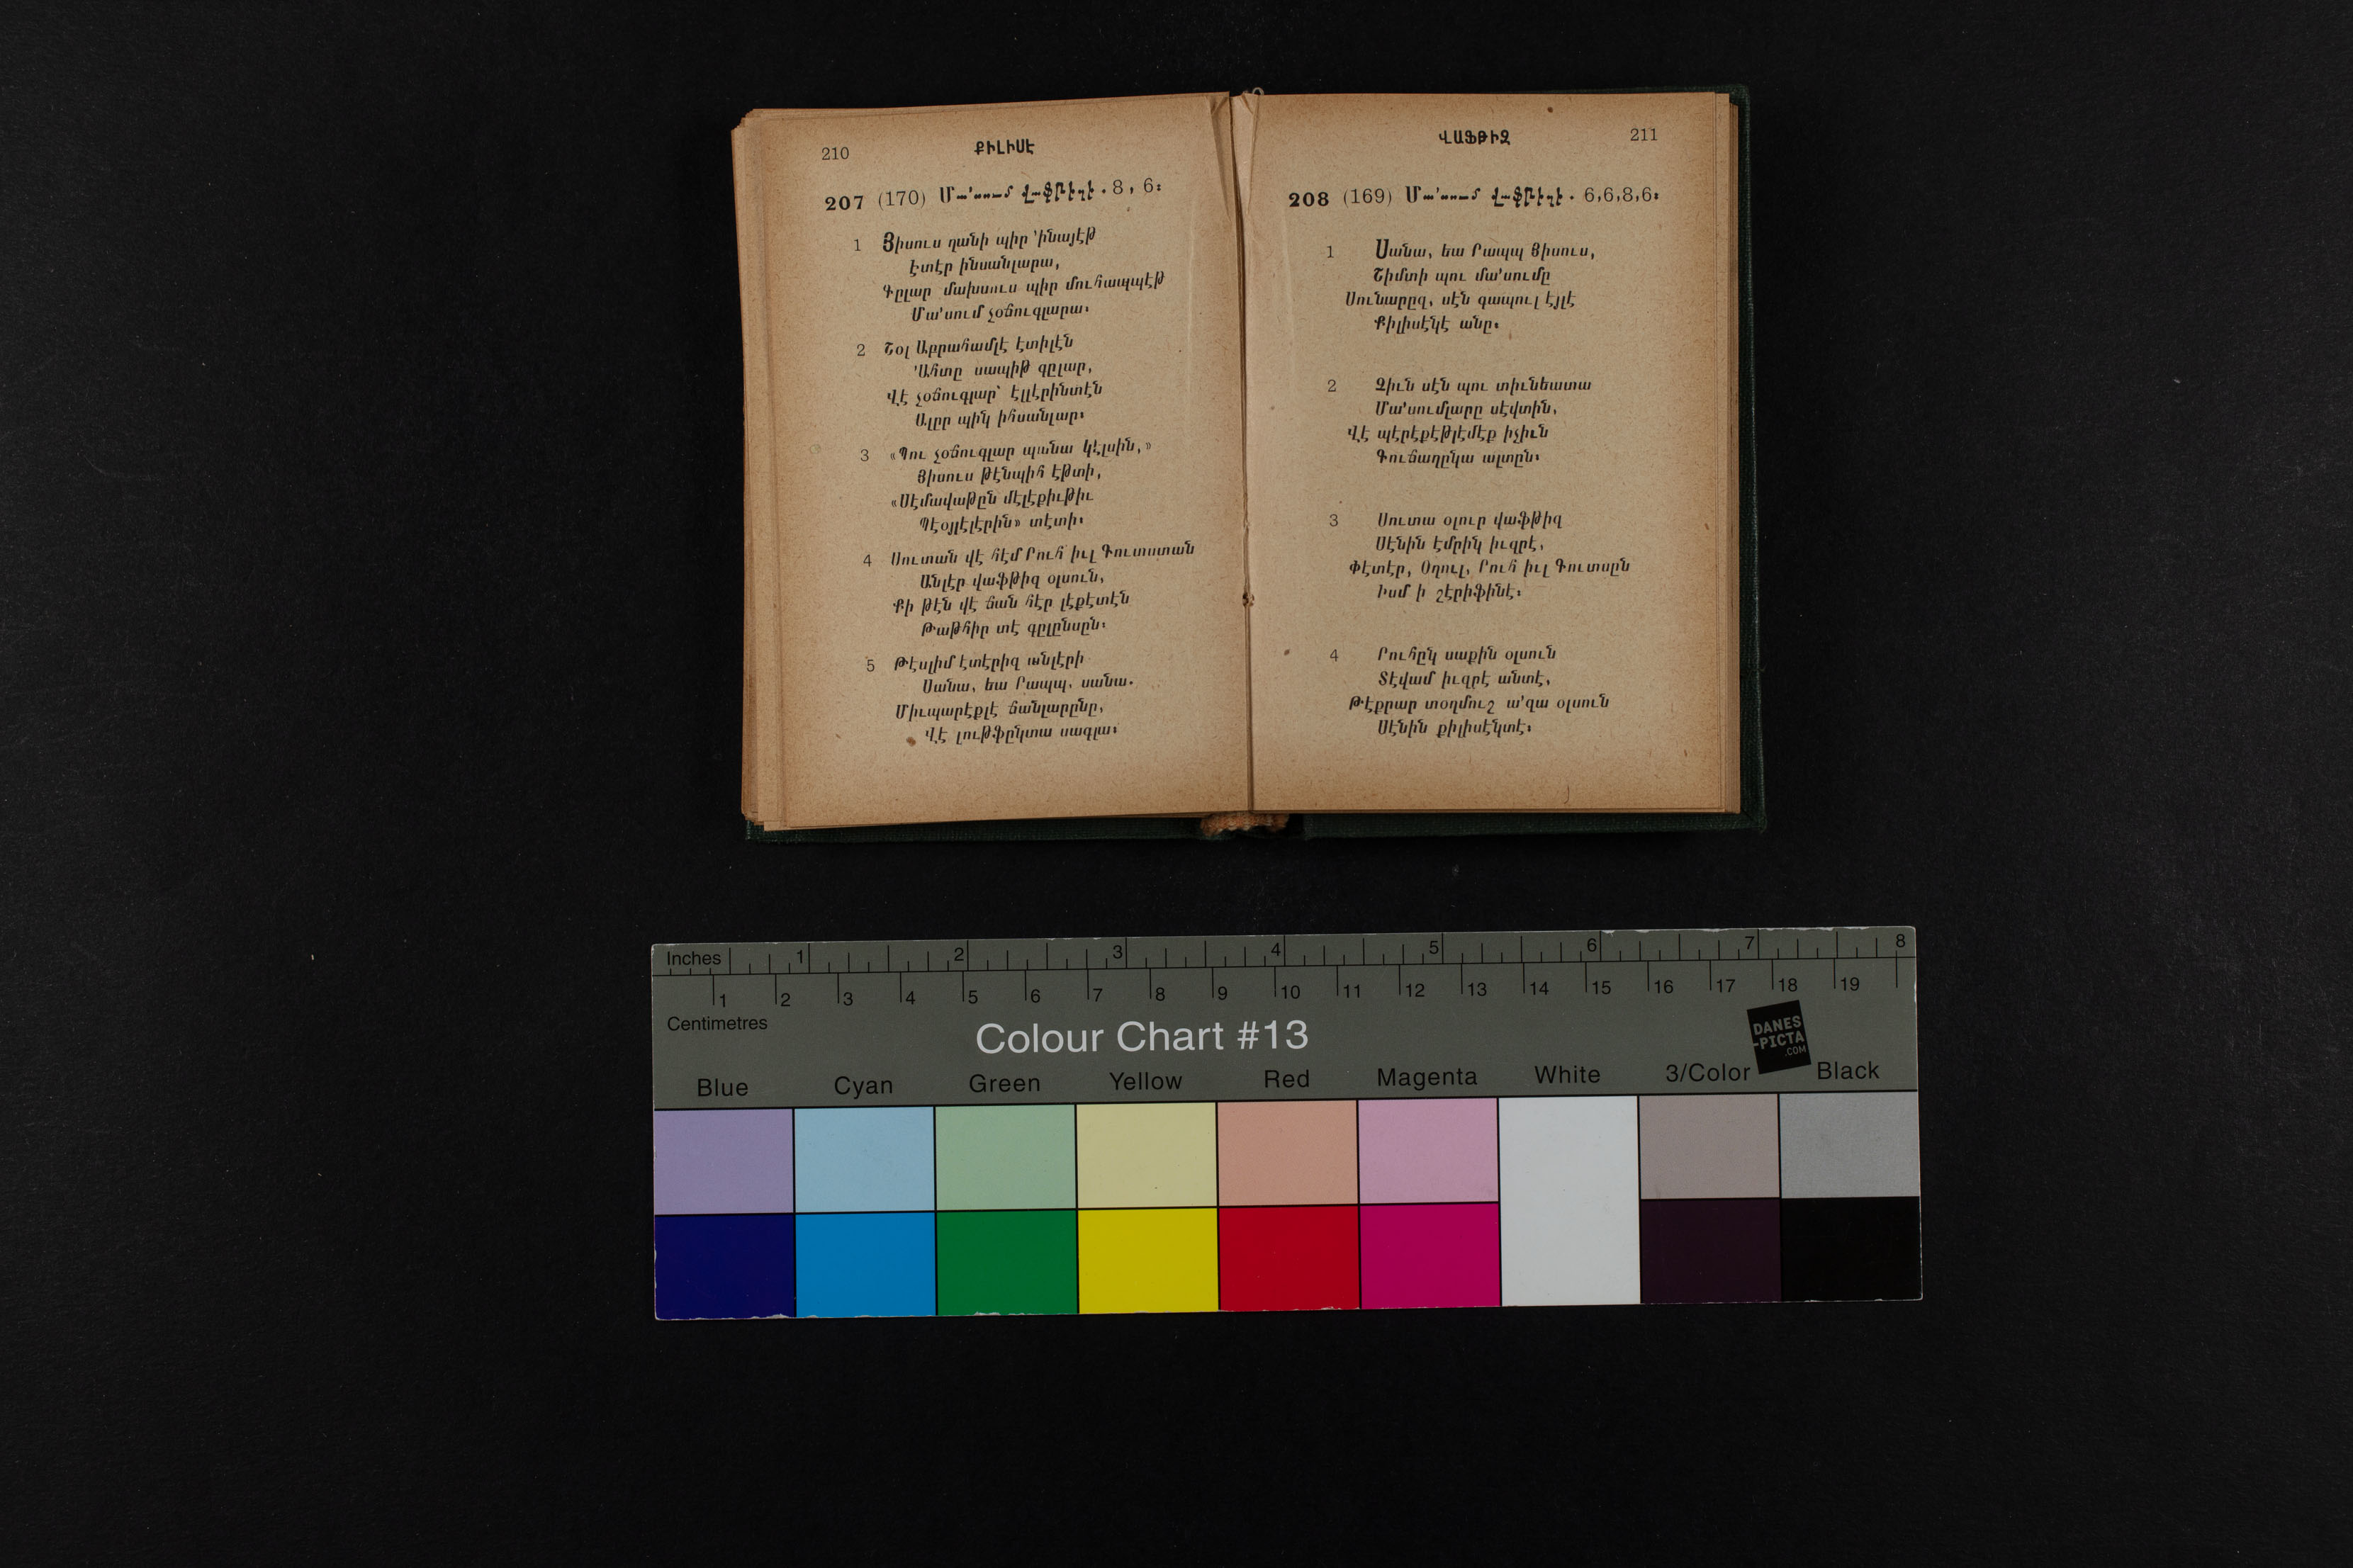 210 ՔԻԼԻՍԷ
207 (170) Մա՛սում Վաֆթիզի . 8, 6։
1 Յիսուս ղանի պիր ՚ինայէթ
Էտէր ինսանլարա,
Գըլար մախսուս պիր մուհապպէթ
Մա՛սում չօճուգլարա։
2 Շօլ Աբրահամլէ էտիլէն
՚Ահտը սապիթ գըլար,
Վէ չօճուգլար՝ էլլէրինտէն
Ալըր պիկ իհսանլար։
3 «Պու չօճուգլար պանա կէլսին,»
Յիսուս թէնպիհ էթտի,
«Սէմավաթըն մէլէքիւթիւ
Պէօյլէլէրին» տէտի։
4 Սուտան վէ հէմ Րուհ իւլ Գուտստան
Անլէր վաֆթիզ օլսուն,
Քի թէն վէ ճան հէր լէքէտէն
Թաթհիր տէ գըլընսըն։
5 Թէսլիմ էտէրիզ անլէրի
Սանա, եա Րապպ, սանա.
Միւպարէքլէ ճանլարընը,
Վէ լութֆըկտա սագլա։
ՎԱՖԹԻԶ 211
208 (169) Մա՛սում Վաֆթիզի . 6,6,8,6։
1 Սանա, եա Րապպ Յիսուս,
Շիմտի պու մա՛սումը
Սունարըզ, սէն գապուլ էյլէ
Քիլիսէկէ անը։
2 Զիւն սէն պու տիւնեատա
Մա՛սումլարը սէվտին,
Վէ պէրէքէթլէմէք իչիւն
Գուճաղըկա ալտըն։
3 Սուտա օլուր վաֆթիզ
Սէնին էմրիկ իւզրէ,
Փէտէր, Օղուլ, Րուհ իւլ Գուտսըն
Իսմ ի շէրիֆինէ։
4 Րուհըկ սաքին օլսուն
Տէվամ իւզրէ անտէ,
Թէքրար տօղմուշ ա՛զա օլսուն
Սէնին քիլիսէկտէ։
Inches 1 2 3 4 5 6 7 8
1 2 3 4 5 6 7 8 9 10 11 12 13 14 15 16 17 18 19
Centimetres
Colour Chart #13
DANES
-PICTA
.COM
Blue Cyan Green Yellow Red Magenta White 3/Color Black